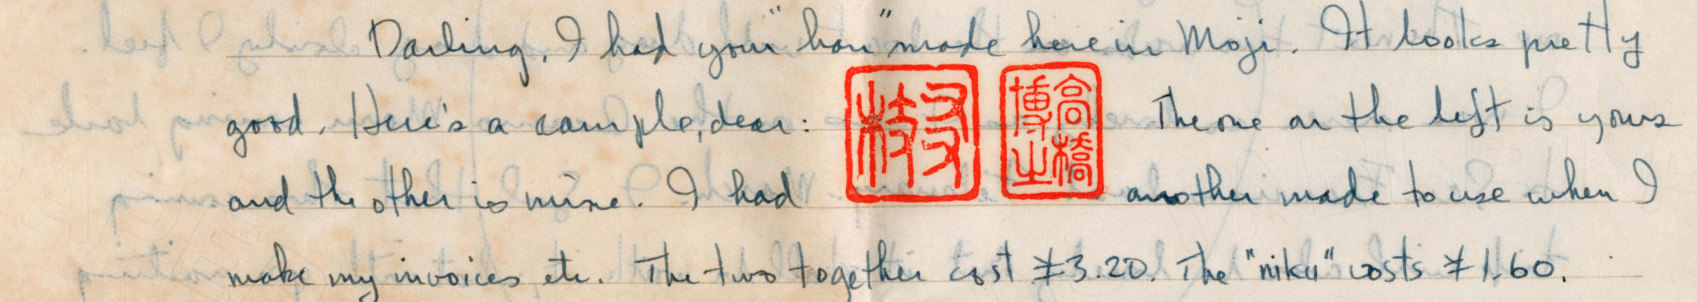 Darling, I had your "han" made here in Moji. It looks pretty
good. Here's a sample, dear: 友枝 高橋博之 The one on the left is yours
and the other is mine. I had another made to use when I
make my invoices etc. The two together cost ¥3.20. The "niku" costs ¥1.60.